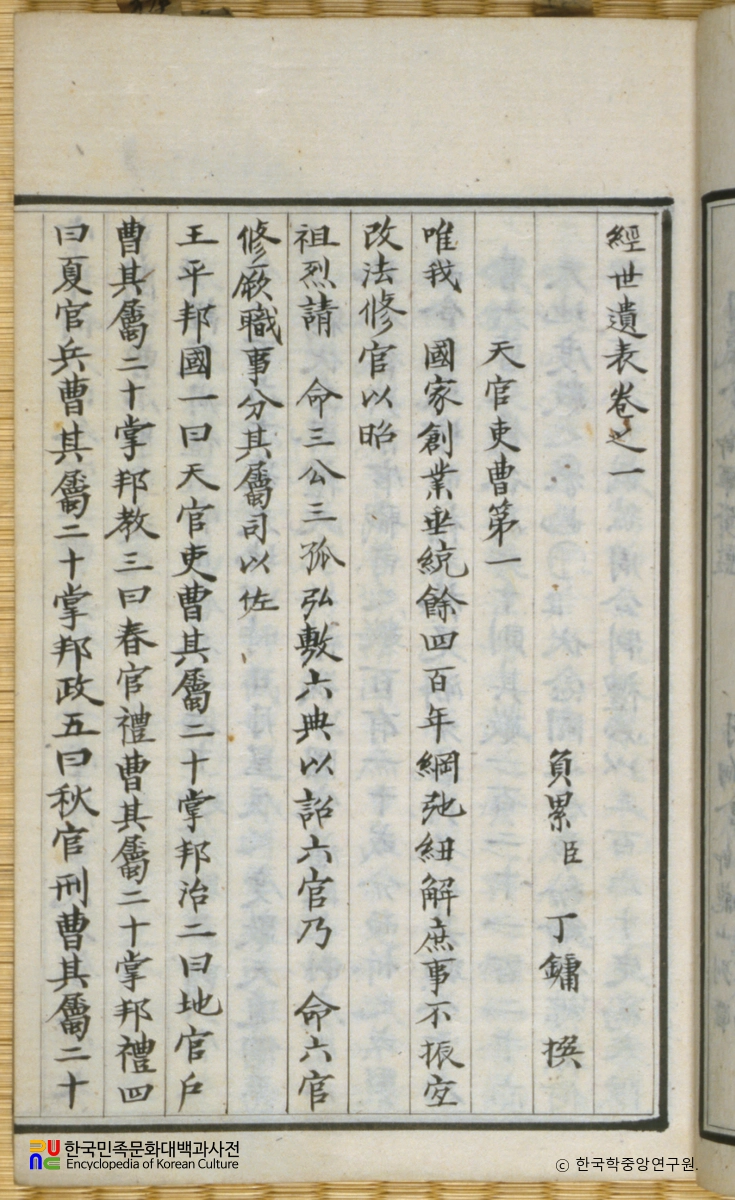 經世遺表卷之一
負累臣 丁鏞 撰
天官吏曹第一
唯我 國家創業垂統餘四百年綱弛紐解庶事不振宜
改法修官以昭
祖烈請 命三公三孤弘敷六典以詔六官乃 命六官
修厥職事分其屬司以佐
王平邦國一曰天官吏曹其屬二十掌邦治二曰地官戶
曹其屬二十掌邦教三曰春官禮曹其屬二十掌邦禮四
曰夏官兵曹其屬二十掌邦政五曰秋官刑曹其屬二十
한국민족문화대백과사전
Encyclopedia of Korean Culture
© 한국학중앙연구원.